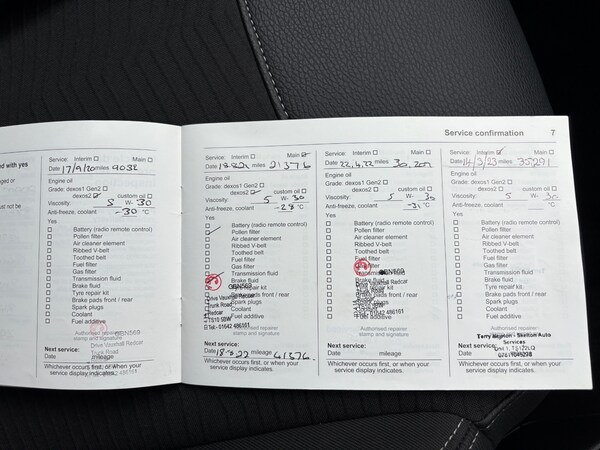 Service confirmation 7
ed with yes
nged or
ust not be
Service: Interim ☐ Main ☐
Date 17/9/20 miles 9032
Engine oil
Grade: dexos1 Gen2 ☐
dexos2 ☑ custom oil ☐
Viscosity: 5 W- 30
Anti-freeze, coolant -30 °C
Yes
☐ Battery (radio remote control)
☐ Pollen filter
☐ Air cleaner element
☐ Ribbed V-belt
☐ Toothed belt
☐ Fuel filter
☐ Gas filter
☐ Transmission fluid
☐ Brake fluid
☐ Tyre repair kit
☐ Brake pads front / rear
☐ Spark plugs
☐ Coolant
☐ Fuel additive
Authorised repairer
stamp and signature
Drive Vauxhall Redcar
Trunk Road
Next service:
Date mileage
Whichever occurs first, or when your
service display indicates.
Service: Interim ☐ Main ☑
Date 18.8.21 miles 21376
Engine oil
Grade: dexos1 Gen2 ☐
dexos2 ☑ custom oil ☐
Viscosity: 5 W- 30
Anti-freeze, coolant -28 °C
Yes
☐ Battery (radio remote control)
☑ Pollen filter
☐ Air cleaner element
☐ Ribbed V-belt
☐ Toothed belt
☐ Fuel filter
☐ Gas filter
Transmission fluid
Brake fluid
repair kit
pads front / rear
Spark plugs
Coolant
Fuel additive
Drive Vauxhall Redcar
Trunk Road
TS10 5BW
Tel:- 01642 486161
Authorised repairer
stamp and signature
Next service:
Date mileage 41376.
Whichever occurs first, or when your
service display indicates.
Service: Interim ☐ Main ☐
Date 22.4.22 miles 30,207
Engine oil
Grade: dexos1 Gen2 ☐
dexos2 ☐ custom oil ☐
Viscosity: 5 W- 30
Anti-freeze, coolant -31 °C
Yes
☐ Battery (radio remote control)
☐ Pollen filter
☐ Air cleaner element
☐ Ribbed V-belt
☐ Toothed belt
☐ Fuel filter
☐ filter
☐ Transmission
☐ Brake fluid
☐ kit
☐ front / rear
☐ Spark plugs
☐ Coolant
☐ Fuel additive
Drive Vauxhall Redcar
Trunk Road
TS10 5BW
Tel:- 01642 486161
Authorised repairer
stamp and signature
Next service:
Date mileage
Whichever occurs first, or when your
service display indicates.
Service: Interim ☑ Main ☐
Date 14/3/23 miles 35291
Engine oil
Grade: dexos1 Gen2 ☐
dexos2 ☐ custom oil ☐
Viscosity: 5 W- 30
Anti-freeze, coolant °C
Yes
☐ Battery (radio remote control)
☐ Pollen filter
☐ Air cleaner element
☐ Ribbed V-belt
☐ Toothed belt
☐ Fuel filter
☐ Gas filter
☐ Transmission fluid
☐ Brake fluid
☐ Tyre repair kit
☐ Brake pads front / rear
☐ Spark plugs
☐ Coolant
☐ Fuel additive
Authorised repairer
stamp and signature
Terry - Skelton Auto
Services
Next service:
Date
Whichever occurs first, or when your
service display indicates.